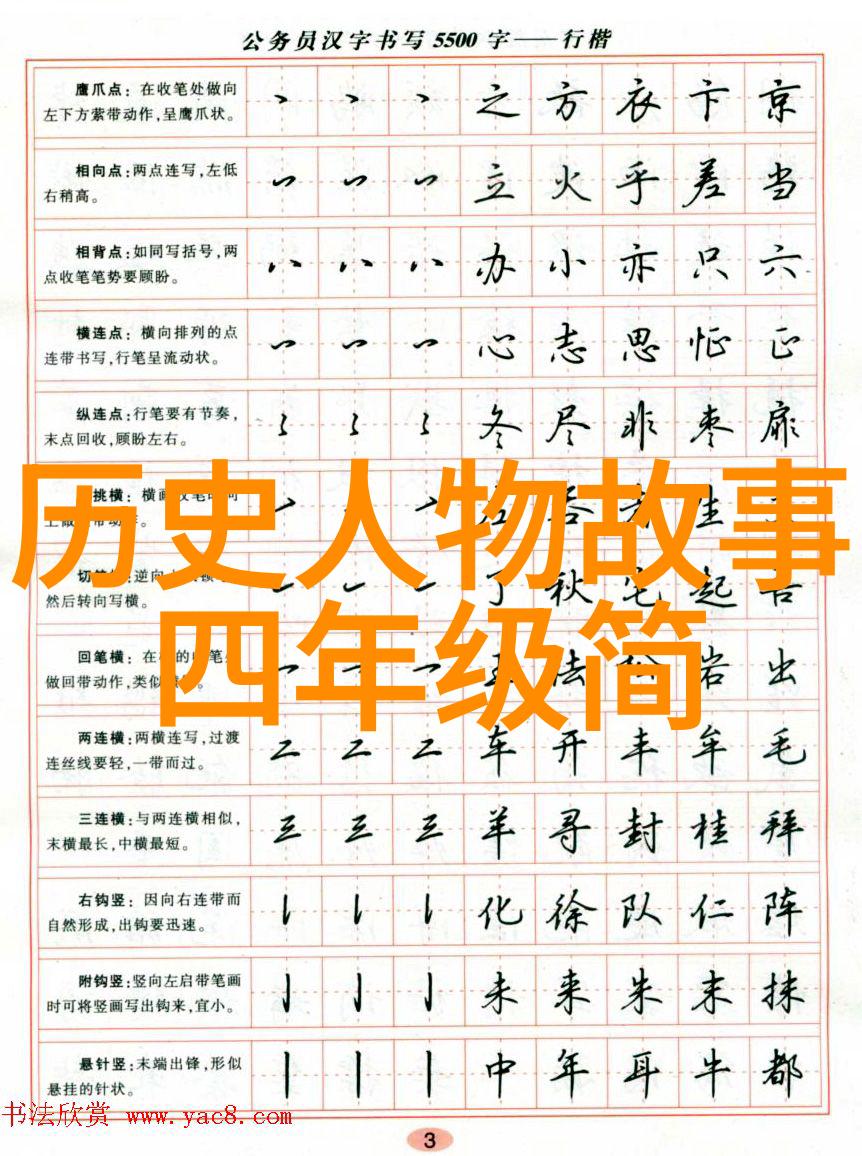 公务员汉字书写5500字——行楷
鹰爪点：在收笔处做向
左下方萦带动作，呈鹰爪状。
之 方 衣 卞 京
相向点：两点连写，左低
右稍高。
立 火 乎 差 当
相背点：如同写括号，两
点收笔笔势要顾盼。
办 小 亦 只 六
横连点：横向排列的点
连带书写，行笔呈流动状。
心 志 思 怔 正
纵连点：行笔要有节奏，
末点回收，顾盼左右。
冬 尽 非 枣 扉
挑横：横画收笔时向
历史人物故事
然后转向写横。
丁 秋 宅 起 古
四年级简
回笔横：在
做回带动作，类似
岩 出
两连横：两横连写，过渡
连丝线要轻，一带而过。
车 开 丰 牟 毛
三连横：与两连横相似，
末横最长，中横最短。
羊 寻 封 桂 拜
右钩竖：因向右连带而
自然形成，出钩要迅速。
化 徐 队 仁 阵
附钩竖：竖向左启带笔画
时可将竖画写出钩来，宜小。
未 来 朱 末 抹
悬针竖：末端出锋，形似
悬挂的针状。
中 年 耳 牛 都
书法欣赏 www.yac8.com
3